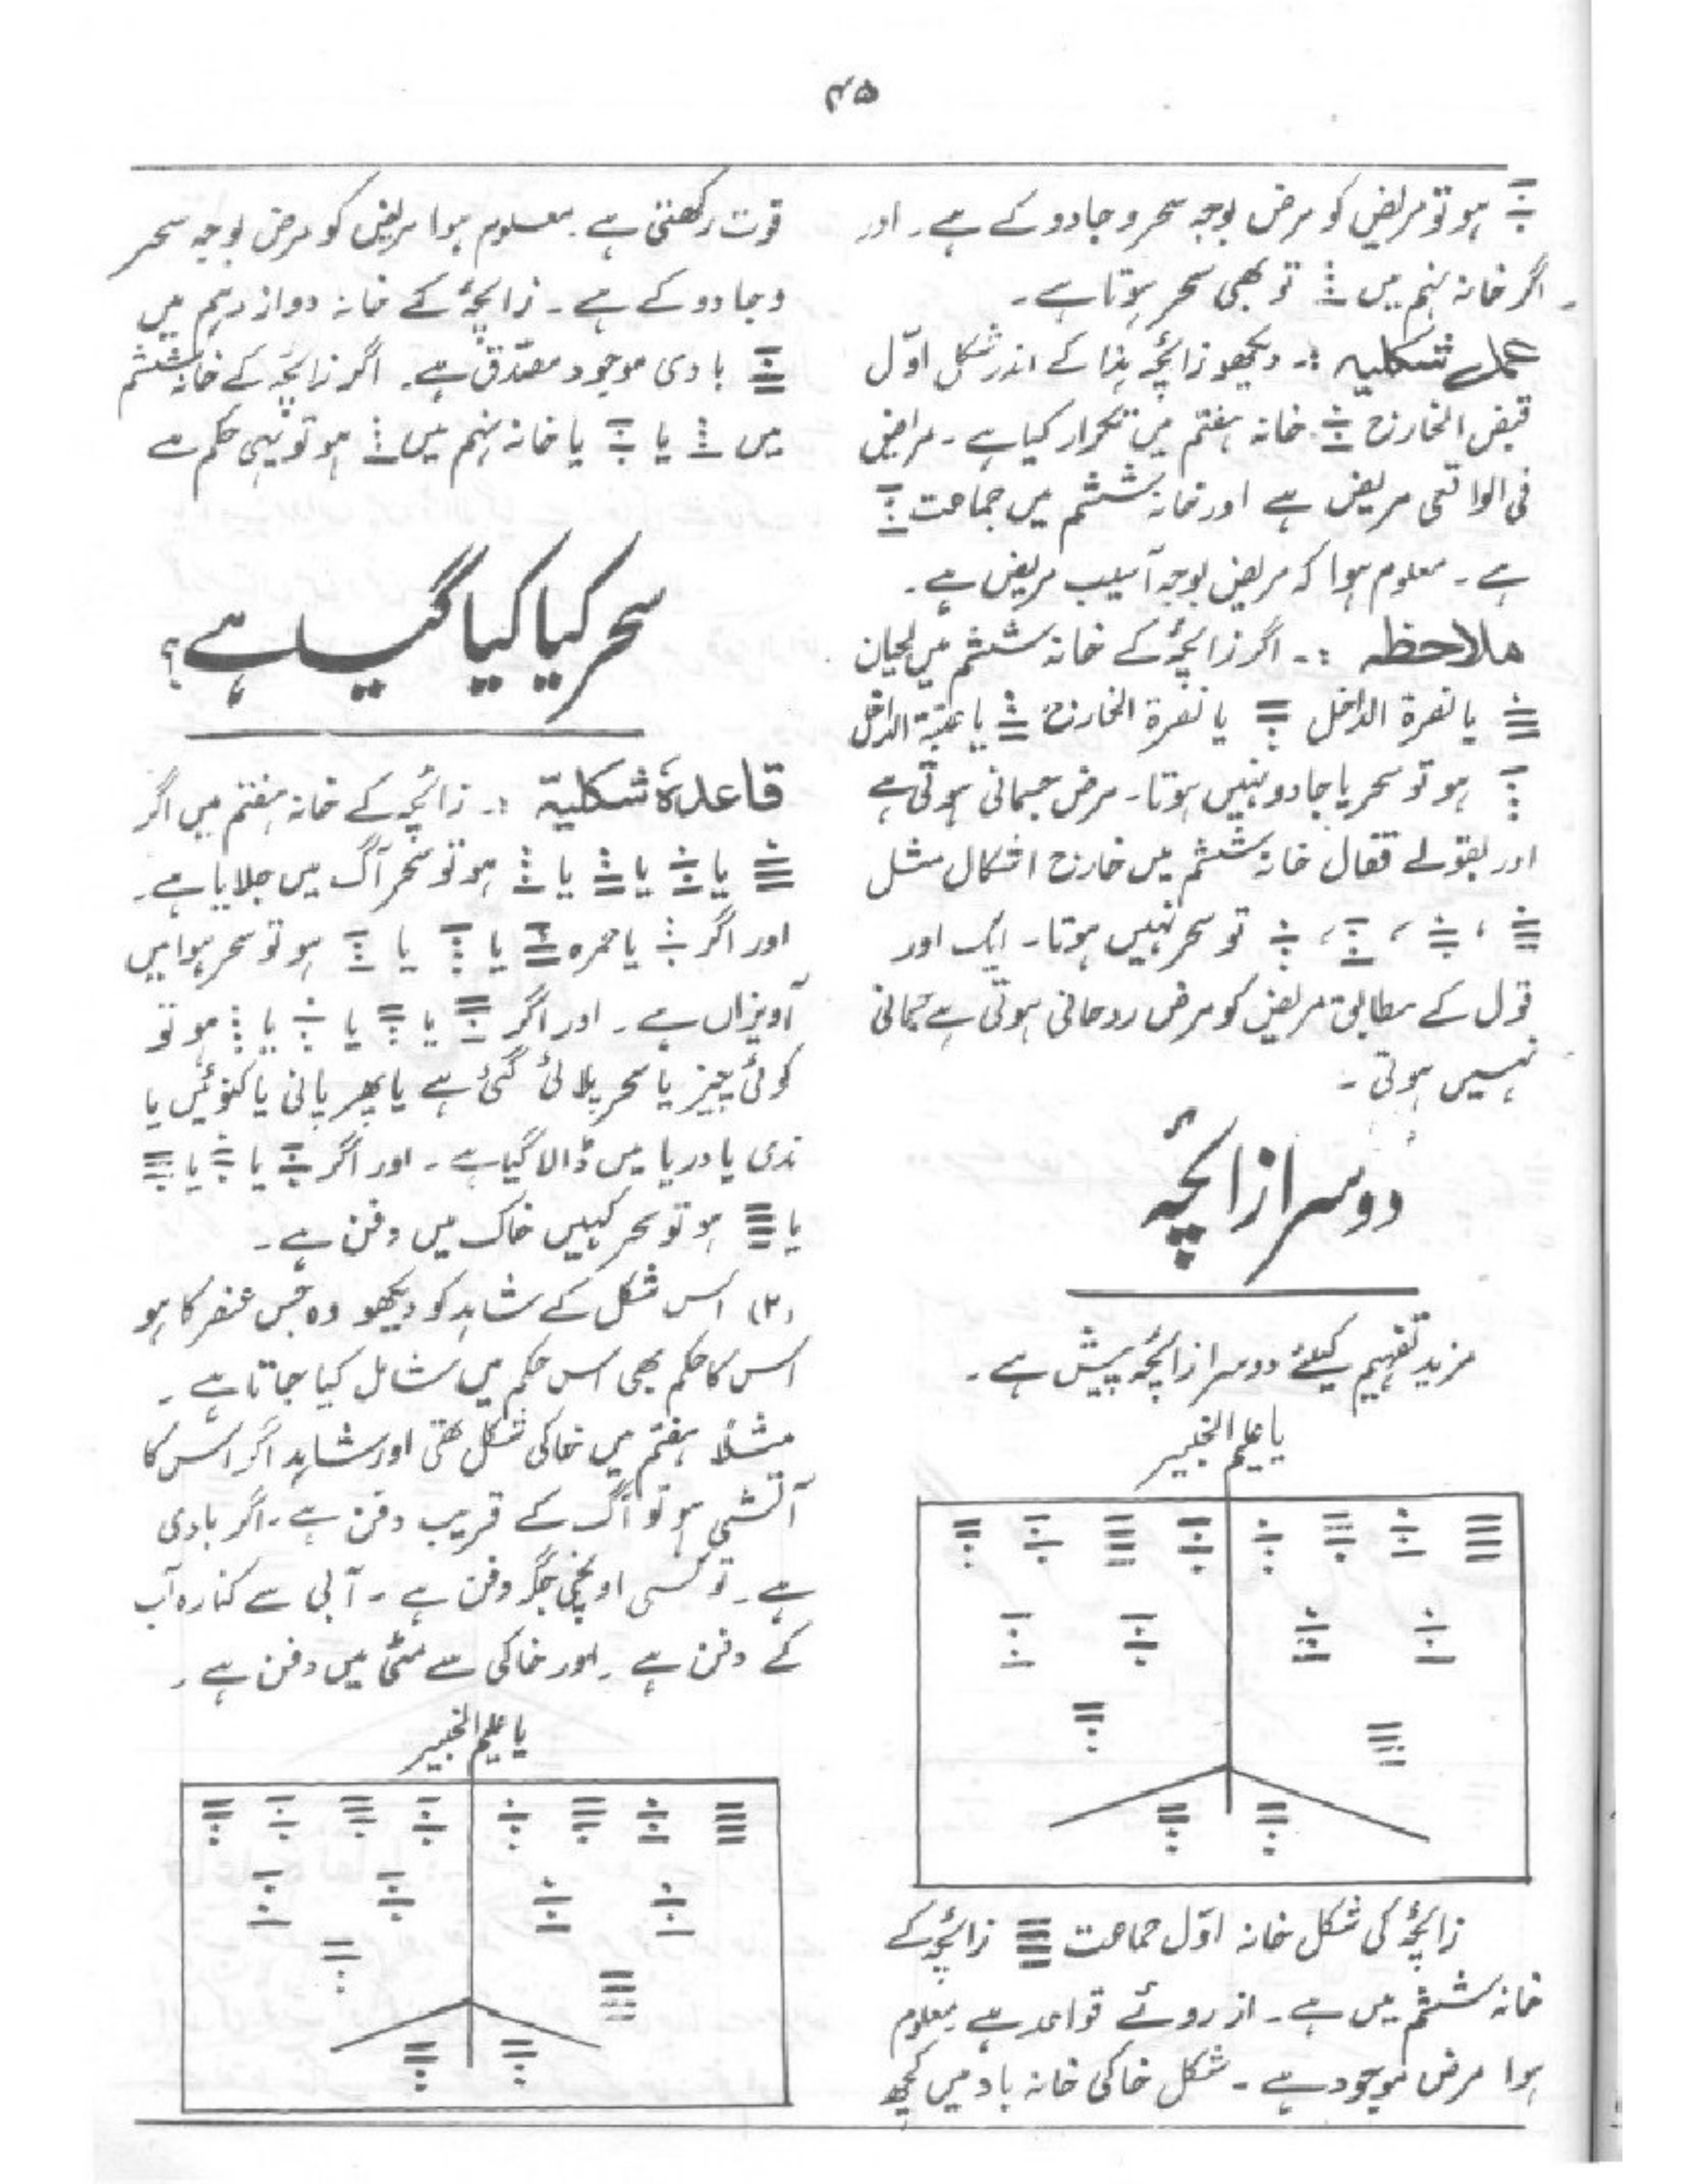 ۴۵
ہو تو مریض کو مرض بوجہ سحر و جادو کے ہے۔ اور
اگر خانہ نہم میں تو بھی سحر ہوتا ہے۔
عمل شکلیہ :۔ دیکھو زائچہ ہذا کے اندر شکل اوّل
قبض الخارج خانہ ہفتم میں تکرار کیا ہے۔ مراض
فی الواقعی مریض ہے اور خانہ ششم میں جماعت
ہے۔ معلوم ہوا کہ مریض بوجہ آسیب مریض ہے۔
ملاحظہ :۔ اگر زائچہ کے خانہ ششم میں لحیان
یا نصرۃ الداخل یا نصرۃ الخارج یا عتبۃ الداخل
ہو تو سحر یا جادو نہیں ہوتا۔ مرض جسمانی ہوتی ہے
اور بقولے قفال خانہ ششم میں خارج اشکال مثل
، ، ، تو سحر نہیں ہوتا۔ ایک اور
قول کے مطابق مریض کو مرض روحانی ہوتی ہے جسمانی
نہیں ہوتی۔
دوسرا زائچہ
مزید تفہیم کیلئے دوسرا زائچہ پیش ہے۔
یا علیم الخبیر
زائچہ کی شکل خانہ اوّل جماعت زائچہ کے
خانہ ششم میں ہے۔ از روئے قواعد ہے معلوم
ہوا مرض موجود ہے۔ شکل خاکی خانہ باد میں کچھ
قوت رکھتی ہے۔ معلوم ہوا مریض کو مرض بوجہ سحر
و جادو کے ہے۔ زائچہ کے خانہ دوازدہم میں
بادی موجود مصدّق ہے۔ اگر زائچہ کے خانہ ششم
میں یا یا خانہ نہم میں ہو تو یہی حکم ہے
سحر کیا کیا گیا ہے؟
قاعدۂ شکلیہ :۔ زائچہ کے خانہ ہفتم میں اگر
یا یا یا ہو تو سحر آگ میں جلایا ہے۔
اور اگر یا حمرہ یا یا ہو تو سحر ہوا میں
آویزاں ہے۔ اور اگر یا یا یا ہو تو
کوئی چیز یا سحر پلائی گئی ہے یا پھر پانی یا کنوئیں یا
ندی یا دریا میں ڈالا گیا ہے۔ اور اگر یا یا
یا ہو تو سحر کہیں خاک میں دفن ہے۔
(۲) اس شکل کے شاہد کو دیکھو وہ جس عنصر کا ہو
اس کا حکم بھی اس حکم میں شامل کیا جاتا ہے۔
مثلاً ہفتم میں خاکی شکل تھی اور شاہد اگر اس کا
آتشی ہو تو آگ کے قریب دفن ہے۔ اگر بادی
ہے۔ تو کسی اونچی جگہ دفن ہے۔ آبی سے کنارہ آب
کے دفن ہے۔ اور خاکی سے مٹی میں دفن ہے۔
یا علیم الخبیر